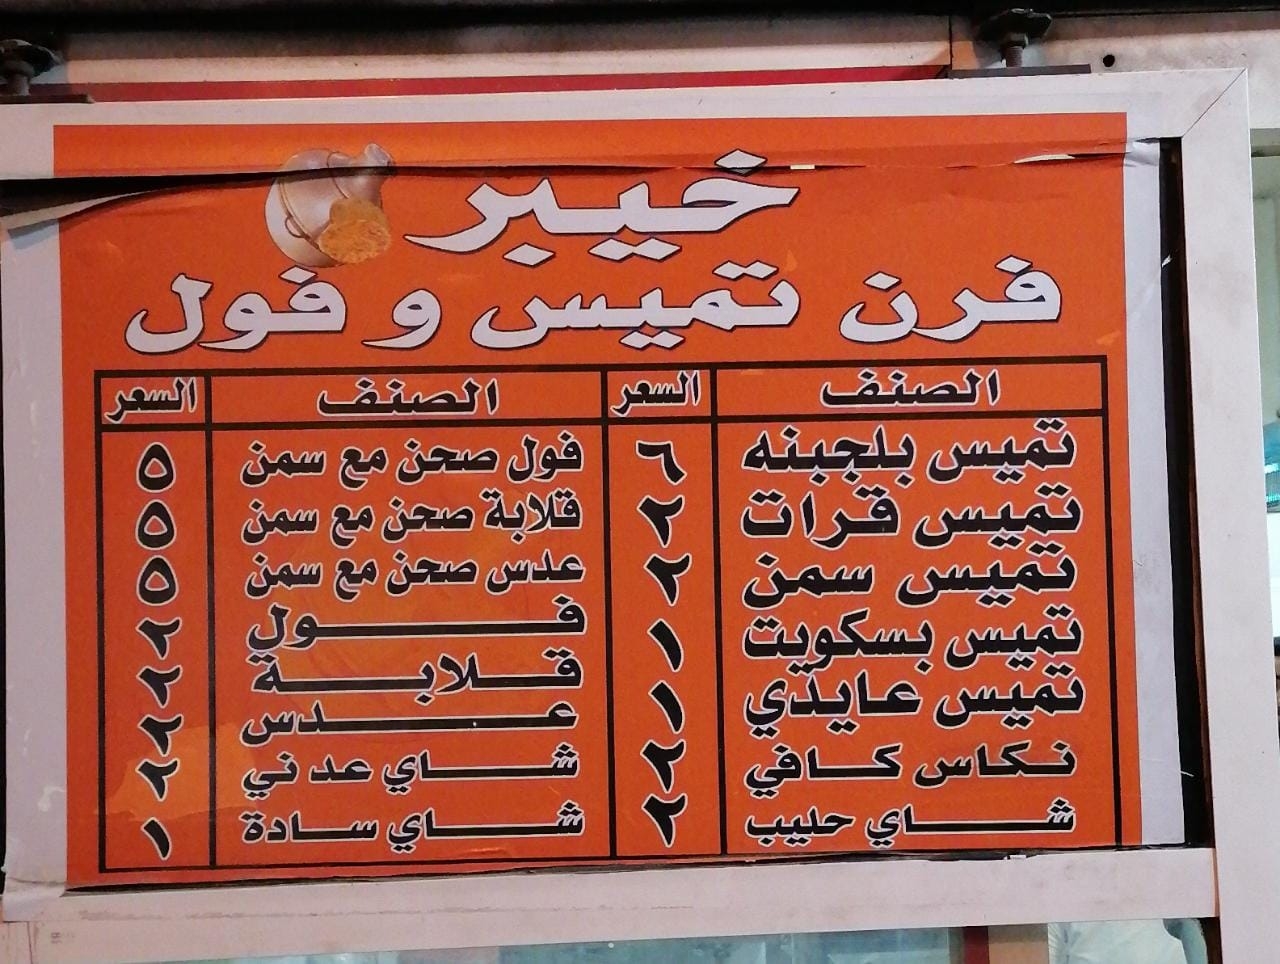 خيبر
فرن تميس و فول
الصنف السعر الصنف السعر
تميس بلجبنه ٦ فول صحن مع سمن ٥
تميس قرات ٢ قلابة صحن مع سمن ٥
تميس سمن ٢ عدس صحن مع سمن ٥
تميس بسكويت ١ فول ٢
تميس عايدي ١ قلابة ٢
نكاس كافي ٢ عدس ٢
شاي حليب ٢ شاي عدني ٢
شاي سادة ١